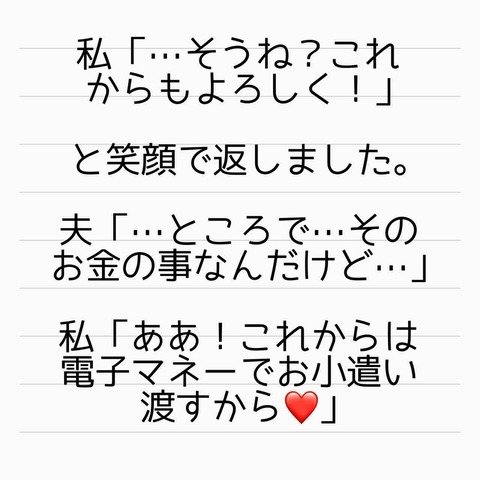 私「…そうね？これ
からもよろしく！」
と笑顔で返しました。
夫「…ところで…その
お金の事なんだけど…」
私「ああ！これからは
電子マネーでお小遣い
渡すから❤️」